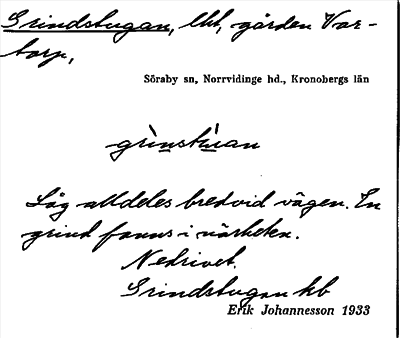 Grindstugan, lht, gården Var-
torp,
Söraby sn, Norrvidinge hd., Kronobergs län
grìnstùan
Låg alldeles bredvid vägen. En
grind fanns i närheten.
Nedrivet.
Grindstugan kb
Erik Johannesson 1933